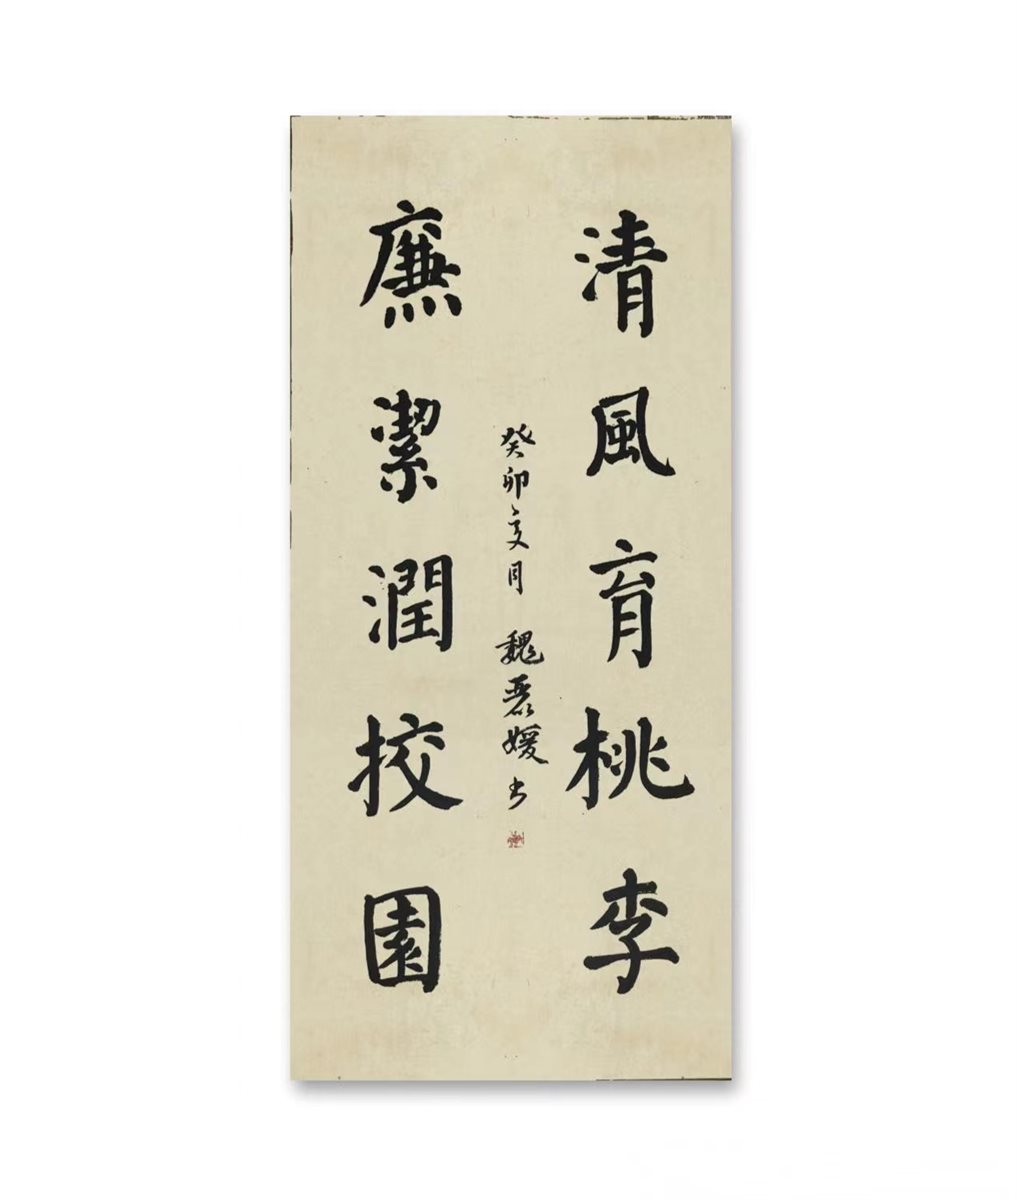 清風育桃李
廉潔潤校園
癸卯夏月 魏磊媛书